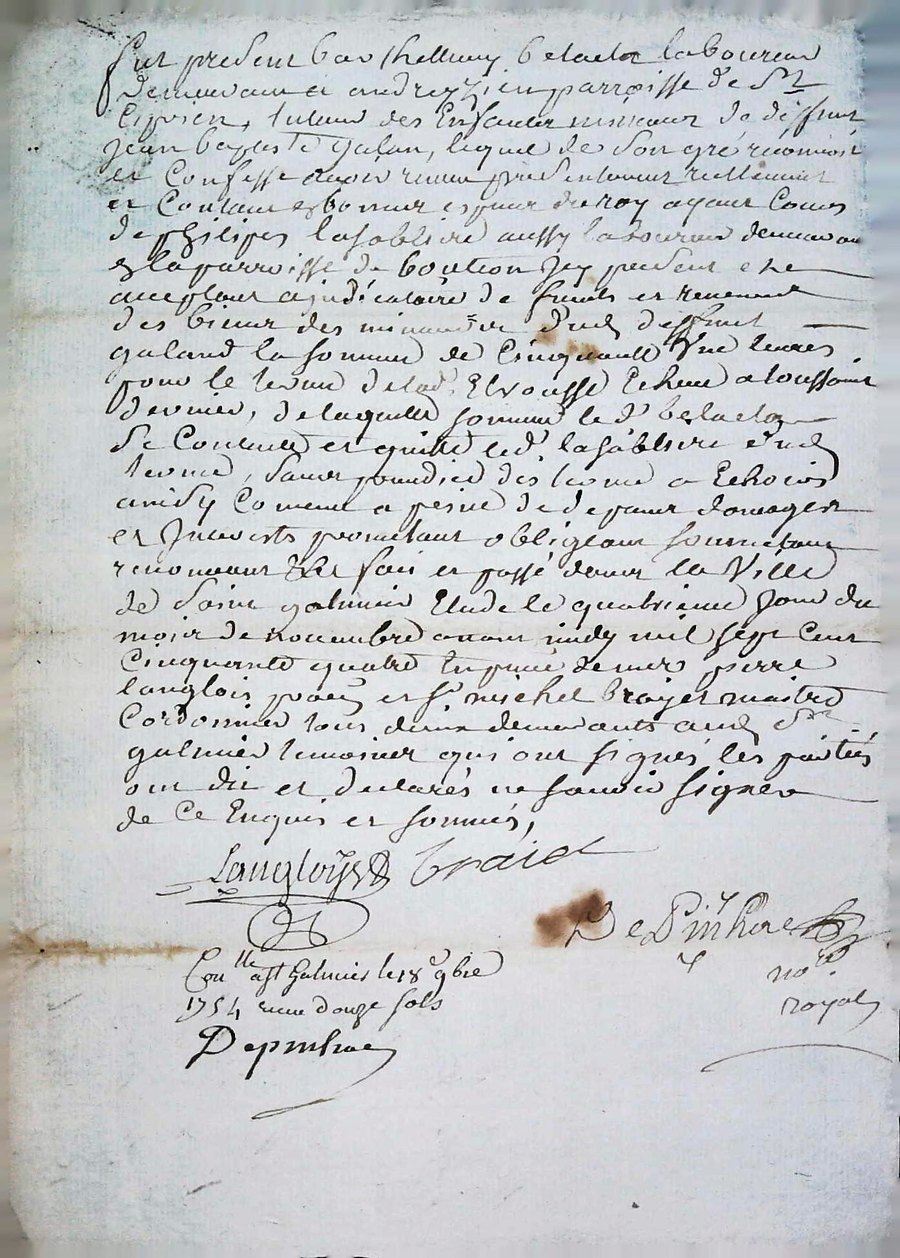 fut present barthellemy belacla laboureur
demeurant a andrezieu parroisse de St
Ciprien, tuteur des Enfants mineurs de deffunt
jean baptiste galan, lequel de son gré reconnoit
et Confesse avoir receu presentement reellement
et Contant es bonnes especes du roy ayant Cours
de philipes lasabliere aussy laboureur demeurant
en la parroisse de boutéon jcy present et ce
acceptant ajudicataire de fruits et revenus
des biens des mineurs dud deffunt
galand la somme de Cinquante Une livres
pour le terme de la Echeue a toussaint
dernier, de laquelle somme le d. belacla
Se Contente et quitte led. lasabliere dud
terme, sans prejudice des termes a Echoir
ainsy Convenu a peine de depans domages
et Jnterests promettant obligeant soumettant
renonceant &c fait et passé dans la Ville
de Saint galmier Etude le quatrieme jour du
mois de novembre avant midy mil sept cent
Cinquante quatre En presence de me pierre
langlois et sr michel brayet maitre
Cordonnier tous deux demeurants aud St
galmier temoins qui ont signés les parties
ont dit et declarés ne savoir signer
de Ce Enquis et sommés,
Langloys
DePinhac
Conlle a St Galmier le 18e 9bre
nore
1754 receu douze sols
royal
Depinhac